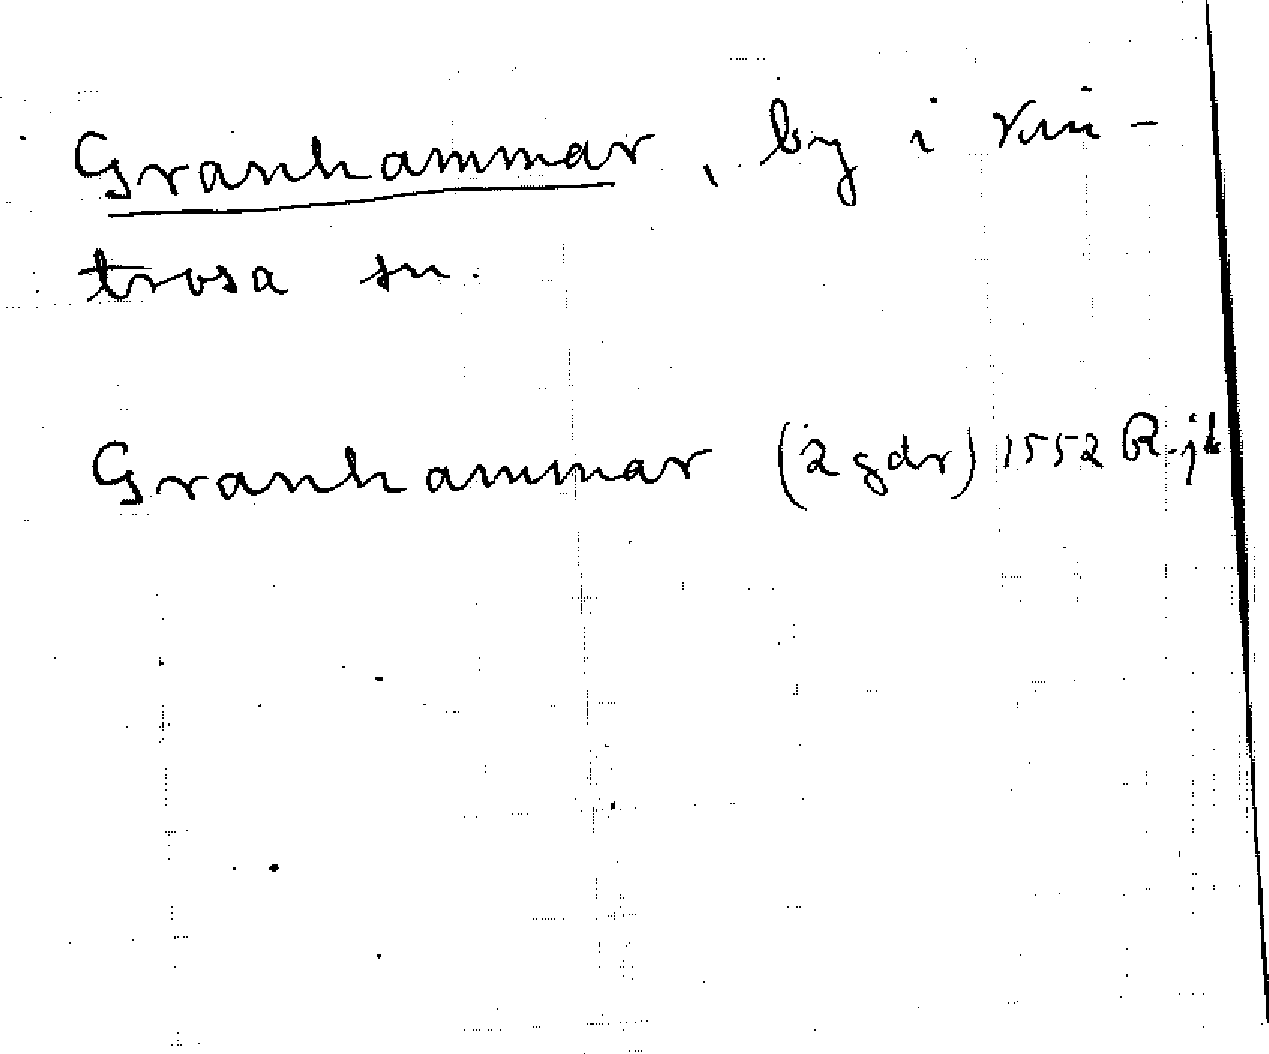 Granhammar, by i Vin-
trosa sn.
Granhammar (2 gdr) 1552 R.jb